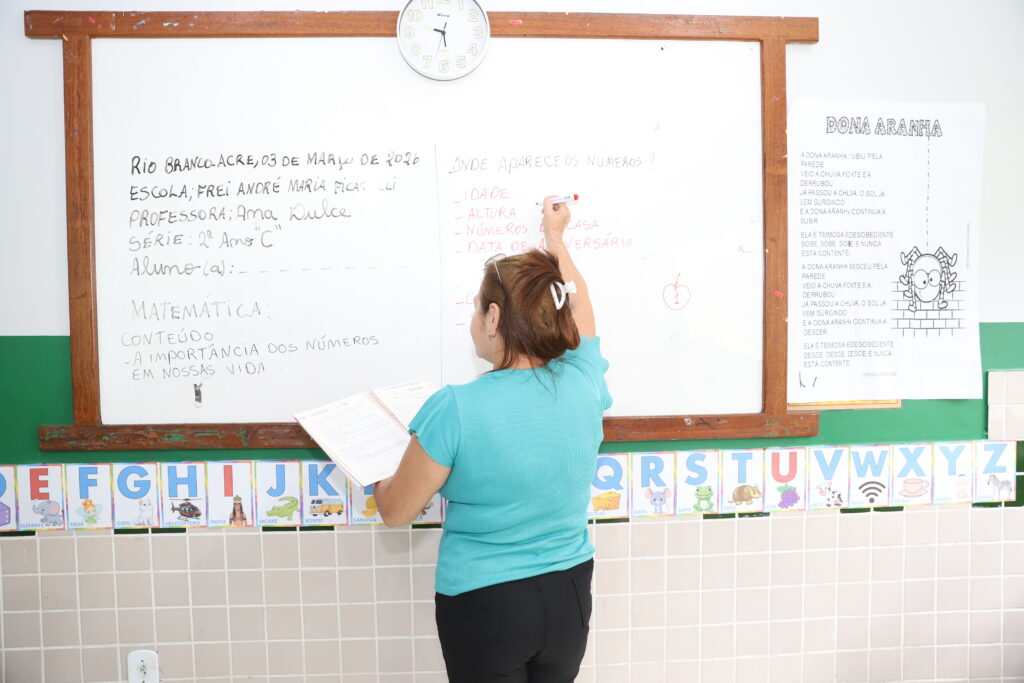 RIO BRANCO-ACRE, 03 DE MARÇO DE 2026
ESCOLA; FREI ANDRÉ MARIA
PROFESSORA; Ana Dulce
SÉRIE: 2º Ano "C"
Aluno(a): _ _ _ _ _ _ _
MATEMÁTICA:
CONTEÚDO
- A IMPORTÂNCIA DOS NÚMEROS
EM NOSSAS VIDA
ONDE APARECE OS NÚMEROS?
- IDADE
- ALTURA
- NÚMEROS CASA
- DATA DE ANIVERSÁRIO
1
B
DONA ARANHA
A DONA ARANHA SUBIU PELA
PAREDE
VEIO A CHUVA FORTE E A
DERRUBOU
JÁ PASSOU A CHUVA, O SOL JÁ
VEM SURGINDO
E A DONA ARANHA CONTINUA A
SUBIR
ELA É TEIMOSA E DESOBEDIENTE
SOBE, SOBE, SOBE E NUNCA
ESTÁ CONTENTE
A DONA ARANHA DESCEU PELA
PAREDE
VEIO A CHUVA FORTE E A
DERRUBOU
JÁ PASSOU A CHUVA, O SOL JÁ
VEM SURGINDO
E A DONA ARANHA CONTINUA A
DESCER
ELA É TEIMOSA E DESOBEDIENTE
DESCE, DESCE, DESCE E NUNCA
ESTÁ CONTENTE
D E F G H I J K Q R S T U V W X Y Z
ELEFANTE FADA GATO HELICÓPTERO ÍNDIO JACARÉ KOMBI LARANJA